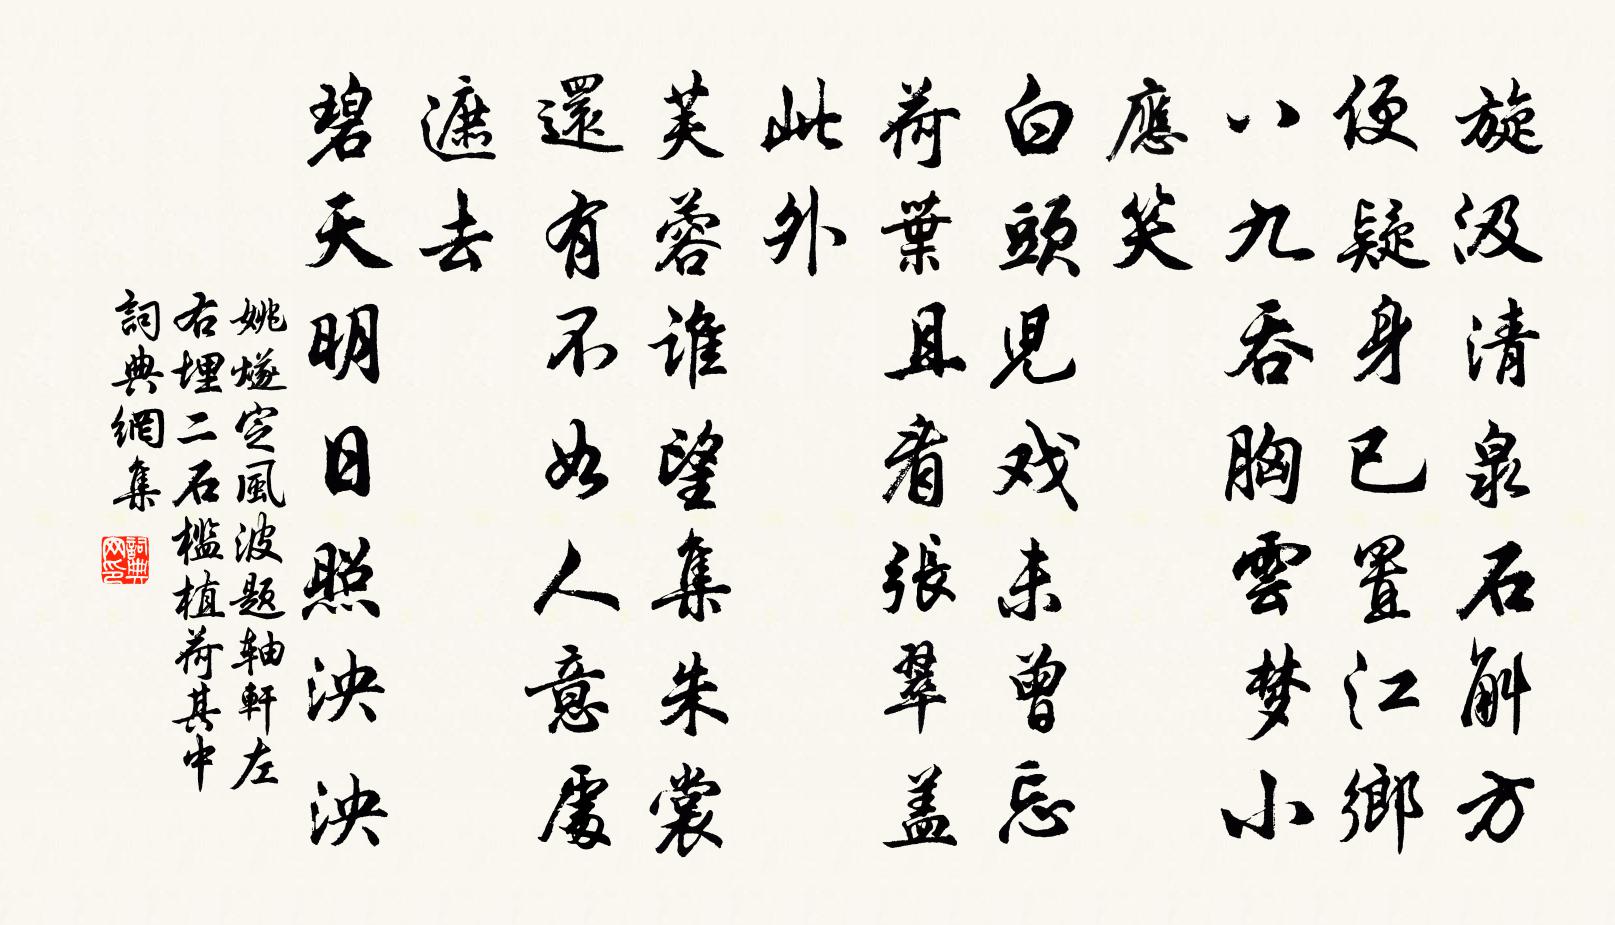 旋汲清泉石斛方
便疑身已置江鄉
八九吞胸雲梦小
應笑
白頭児戏未曾忘
荷葉且看張翠盖
此外
芙蓉谁望集朱裳
還有不如人意處
遮去
碧天明日照泱泱
姚燧定風波题軸軒左
右埋二石槛植荷其中
詞典網集
詞典网印